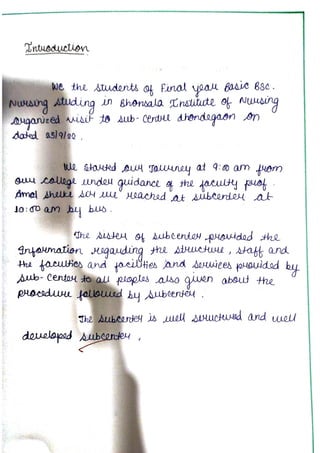 Introduction
We the students of Final year Basic BSC.
Nursing studing in Bhonsala Institute of Nursing
organized visit to sub-centre dhondegaon on
dated 23/9/22.
We started our Journey at 9:00 am from
our college under guidance of the faculty prof.
Amol Shelke sir we reached at subcenter at
10:00 am by bus.
The sister of subcenter provided the
Information regarding the structure, staff and
the faculties and facilities and services provided by
sub-center to all peoples also given about the
procedure followed by subcenter.
The subcenter is well structured and well
developed subcenter.